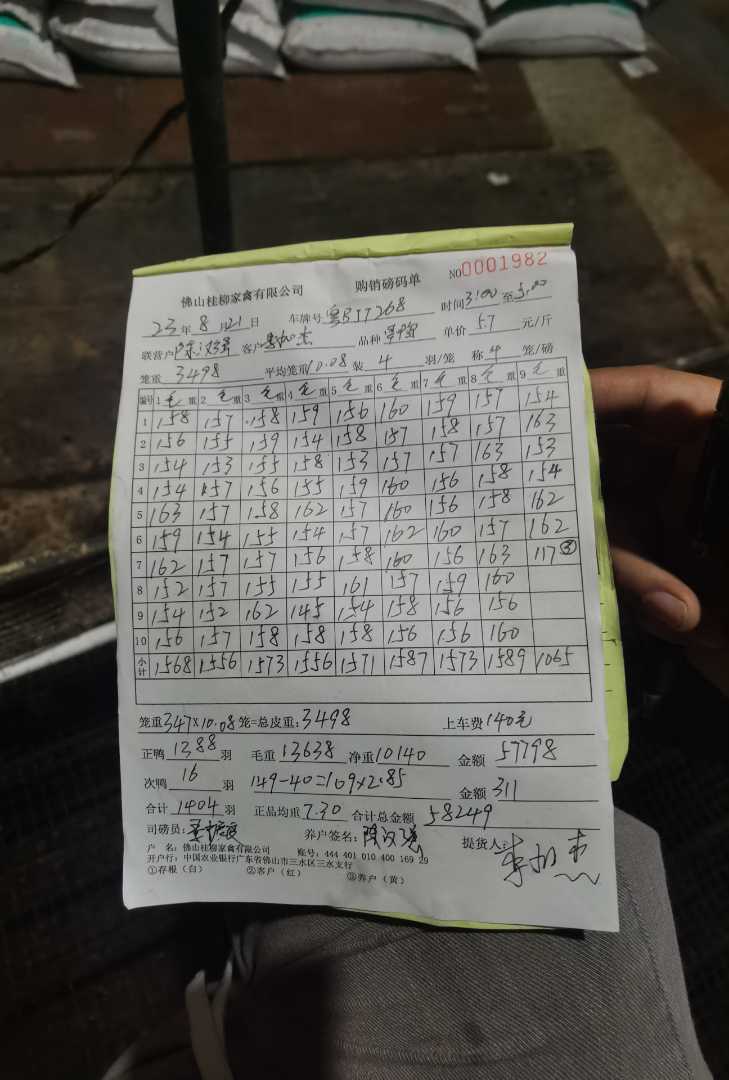 佛山桂柳家禽有限公司 购销磅码单 NO0001982
23年8月21日 车牌号 粤BJT268 时间3:00至
联营户 客户 品种 单价5.7元/斤
笼重3498 平均笼重10.08装4羽/笼 称4笼/磅
编号 1毛重 2毛重 3毛重 4毛重 5毛重 6毛重 7毛重 8毛重 9毛重
1 158 157 158 159 156 160 159 157 154
2 156 155 159 154 158 157 158 157 163
3 154 153 155 158 153 157 157 163 153
4 154 157 156 155 159 160 156 158 154
5 163 157 158 162 157 160 156 158 162
6 159 154 155 154 157 162 160 157 162
7 162 157 157 156 158 160 156 163 117③
8 152 157 155 155 161 157 159 160
9 154 152 162 145 154 158 156 156
10 156 157 158 158 158 156 156 160
小计 1568 1556 1573 1556 1571 1587 1573 1589 1065
笼重347×10.08笼=总皮重:3498 上车费140元
正鸭1388羽 毛重13638净重10140 金额57798
次鸭16羽 149-40=109×2.85 金额311
合计1404羽 正品均重7.30 合计总金额58249
司磅员: 养户签名: 提货人:
户 名:佛山桂柳家禽有限公司 账号:444 401 010 400 169 29
开户行:中国农业银行广东省佛山市三水区三水支行
①存根(白) ②客户(红) ③养户(黄)